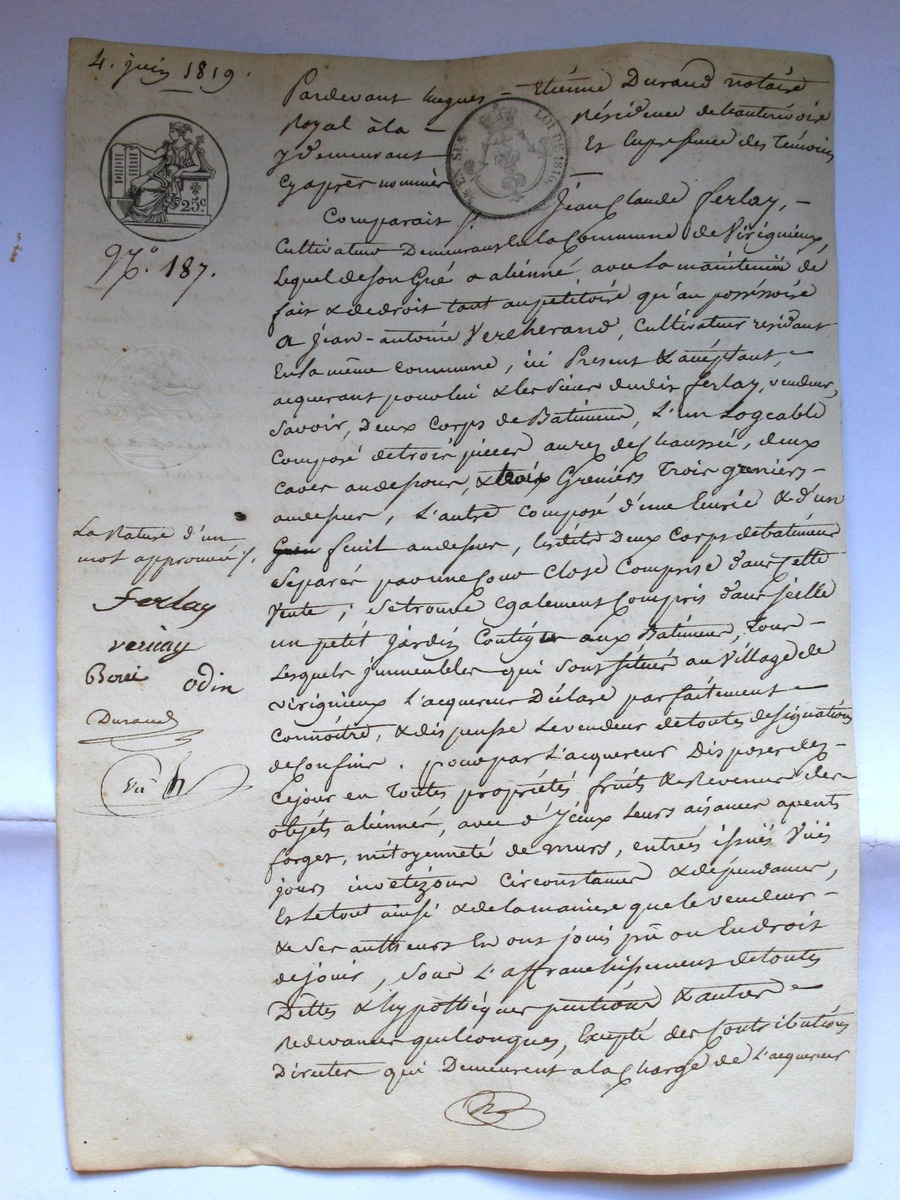 4. juin 1819.
Pardevant hugues - Etienne Durand notaire
Royal à la - Résidence de hauterivoire
y demeurant Et En presence des Témoins
Cy après nommés
LOI DE 1816
25c
No. 187.
Comparait Jean Claude ferlay, -
Cultivateur Demeurant En la Commune de Virignieux,
Lequel de Son Gré a aliénné avec la maintenüe de
fait & de droit tant au petitoire qu'au posséssoire
a Jean-antoine Vereherand, Cultivateur residant
En la même commune, ici Present & acceptant, -
acquerant pour lui & les Siens dudit ferlay, vendeur,
Savoir, Deux Corps de Batiments, L'un Logeable
Composé de trois pieces au rez de Chaussée, deux
Caves au dessous, & trois Greniers Trois greniers -
au dessus, L'autre Composé d'une Ecurie & d'un
fenil au dessus, lesdits Deux Corps de batiments
Separés par une Cour Close Comprise dans Cette
Vente; Se trouve Egalement Compris dans icelle
un petit Jardin Contigu aux Batiments, Tous -
Lesquels Immeubles qui Sont Situés au Village de
Virignieux L'acquereur Déclare parfaitement -
Connoitre, & dispense Le vendeur de toutes designations
de Confins. pour par L'acquereur Disposer des -
Ce jour en Toutes propriétés, fruits & Revenus des
objets aliennés, avec d'Iceux Leurs aisances apents
forgets, mitoyenneté de murs, entrées issües Vües
jours Circonstances & dépendances,
Et le tout ainsi & de la maniere que le vendeur -
& Ses autheurs En ont joui pû ou En droit
de jouir, Sous L'affranchissement de toutes
Dettes & hypothèques & autres -
Redevances quelconques, Excepté des Contributions
Directes qui Demeurent a la Charge de L'acquereur
La Rature d'un
mot approuvée
ferlay
vernay
Boiri odin
Durand